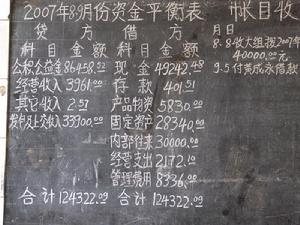 2007年8.9月份资金平衡表
贷方 借方
科目 金额 科目 金额
公积.公益金 86458.52 现金 49242.48
经营收入 3961.00 存款 401.51
其它收入 2.57 产品物资 5830.00
发包及上交收入 33900.00 固定资产 28340.00
内部往来 30000.00
经营支出 2172.10
管理费用 8336.00
合计 124322.09 合计 124322.09
帐目收
月日
8.8.收大组.拨2007年
40000.00元
9.5付黄成永借款